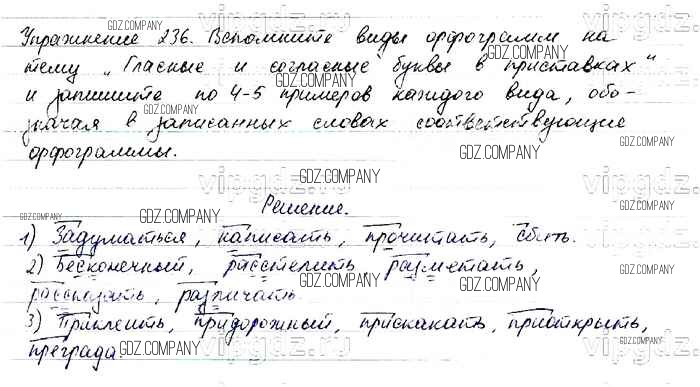 Упражнение 236. Вспомните виды орфограмм на
тему „Гласные и согласные буквы в приставках"
и запишите по 4-5 примеров каждого вида, обо-
значая в записанных словах соответствующие
орфограммы.
Решение.
1) Задуматься, написать, прочитать, сбить.
2) Бесконечный, расстелить, разметать,
рассказать, различать.
3) Приклеить, придорожный, прискакать, приоткрыть,
преграда